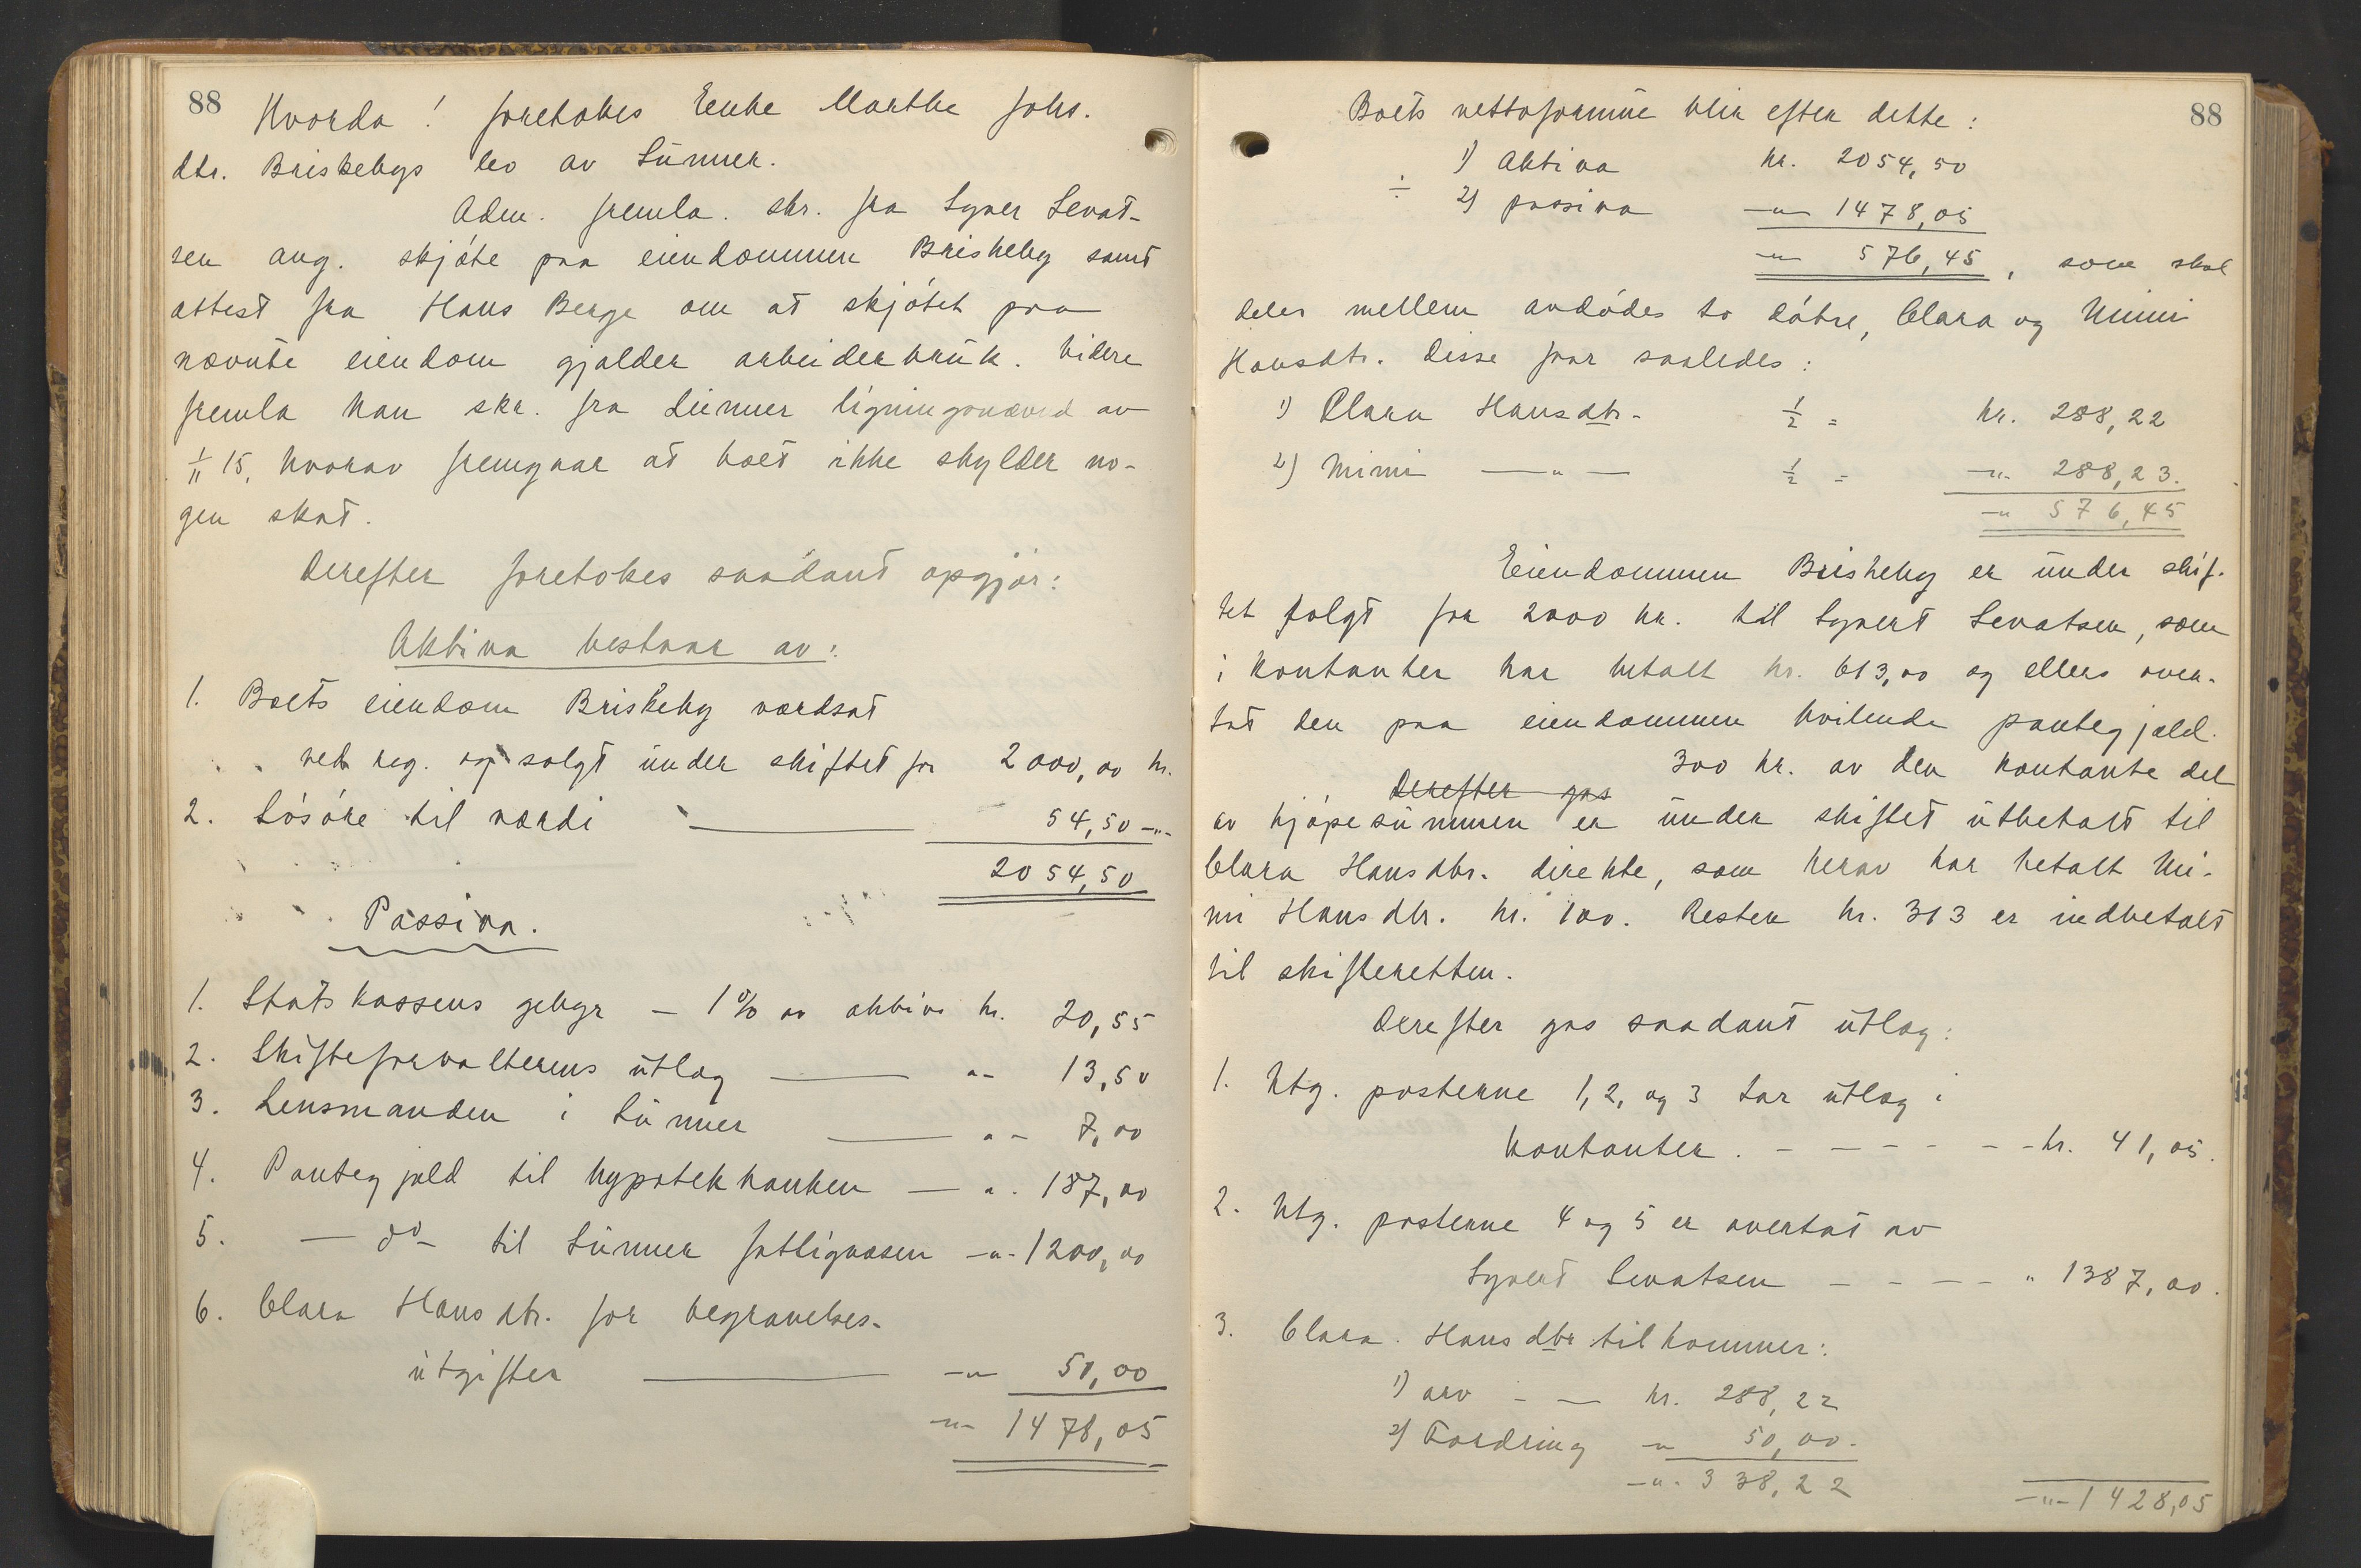 88
Hvorda! foretokes Enke Marthe Johs.
dtr. Briskebys bo av Lunner.
Adm. fremla. skr. fra Syver Sevat-
sen ang. skjøte paa eiendommen Briskeby samt
attest fra Hans Berge om at skjøtet paa
nævnte eiendom gjælder arbeiderbruk. Videre
fremla han skr. fra Lunner ligningsnævnd av
1/11 15, hvorav fremgaar at boet ikke skylder no-
gen skat.
Derefter foretokes saadant opgjør:
Aktiva bestaar av:
1. Boets eiendom Briskeby værdsat
ved reg. og solgt under skiftet for 2000,00 kr.
2. Løsøre til værdi — 54,50 -"-
2054,50
Passiva.
1. Statskassens gebyr – 1% av aktiva kr. 20,55
2. Skifteforvalterens utlæg — "- 13,50
3. Lensmanden i Lunner — "- 7,00
4. Pantegjæld til hypotekbanken — ". 187,00
5. — do – til Lunner fattigvæsen -"- 1200,00
6. Clara Hansdtr. for begravelses-
utgifter — -"- 50,00
-"- 1478,05
88
Boets nettoformue blir efter dette:
1) Aktiva kr. 2054,50
÷ 2) passiva -"- 1478,05
-"- 576,45, som skal
deles mellem avdødes to døtre, Clara og Mimi
Hansdtr. Disse faar saaledes:
1) Clara Hansdtr. 1/2 = kr. 288,22
2) Mimi —"— 1/2 = -"- 288,23.
-" 576,45
Eiendommen Briskeby er under skif-
tet solgt for 2000 kr. til Syvert Sevatsen, som
i kontanter har betalt kr. 613,00 og ellers over-
tat den paa eiendommen hvilende pantegjæld.
300 kr. av den kontante del
Derefter gas
av kjøpesummen er under skiftet utbetalt til
Clara Hansdtr. direkte, som herav har betalt Mi-
mi Hansdtr. kr. 100. Resten kr. 313 er indbetalt
til skifteretten.
Derefter gas saadant utlæg:
1. Utg. posterne 1, 2, og 3 tar utlæg i
kontanter. - - - - - - kr. 41,05.
2. Utg. posterne 4 og 5 er overtat av
Syvert Sevatsen - - - - " 1387,00.
3. Clara. Hansdtr tilkommer:
1) arv - - kr. 288,22
2) Fordring -" 50,00.
-"- 338,22
-"- 1428,05